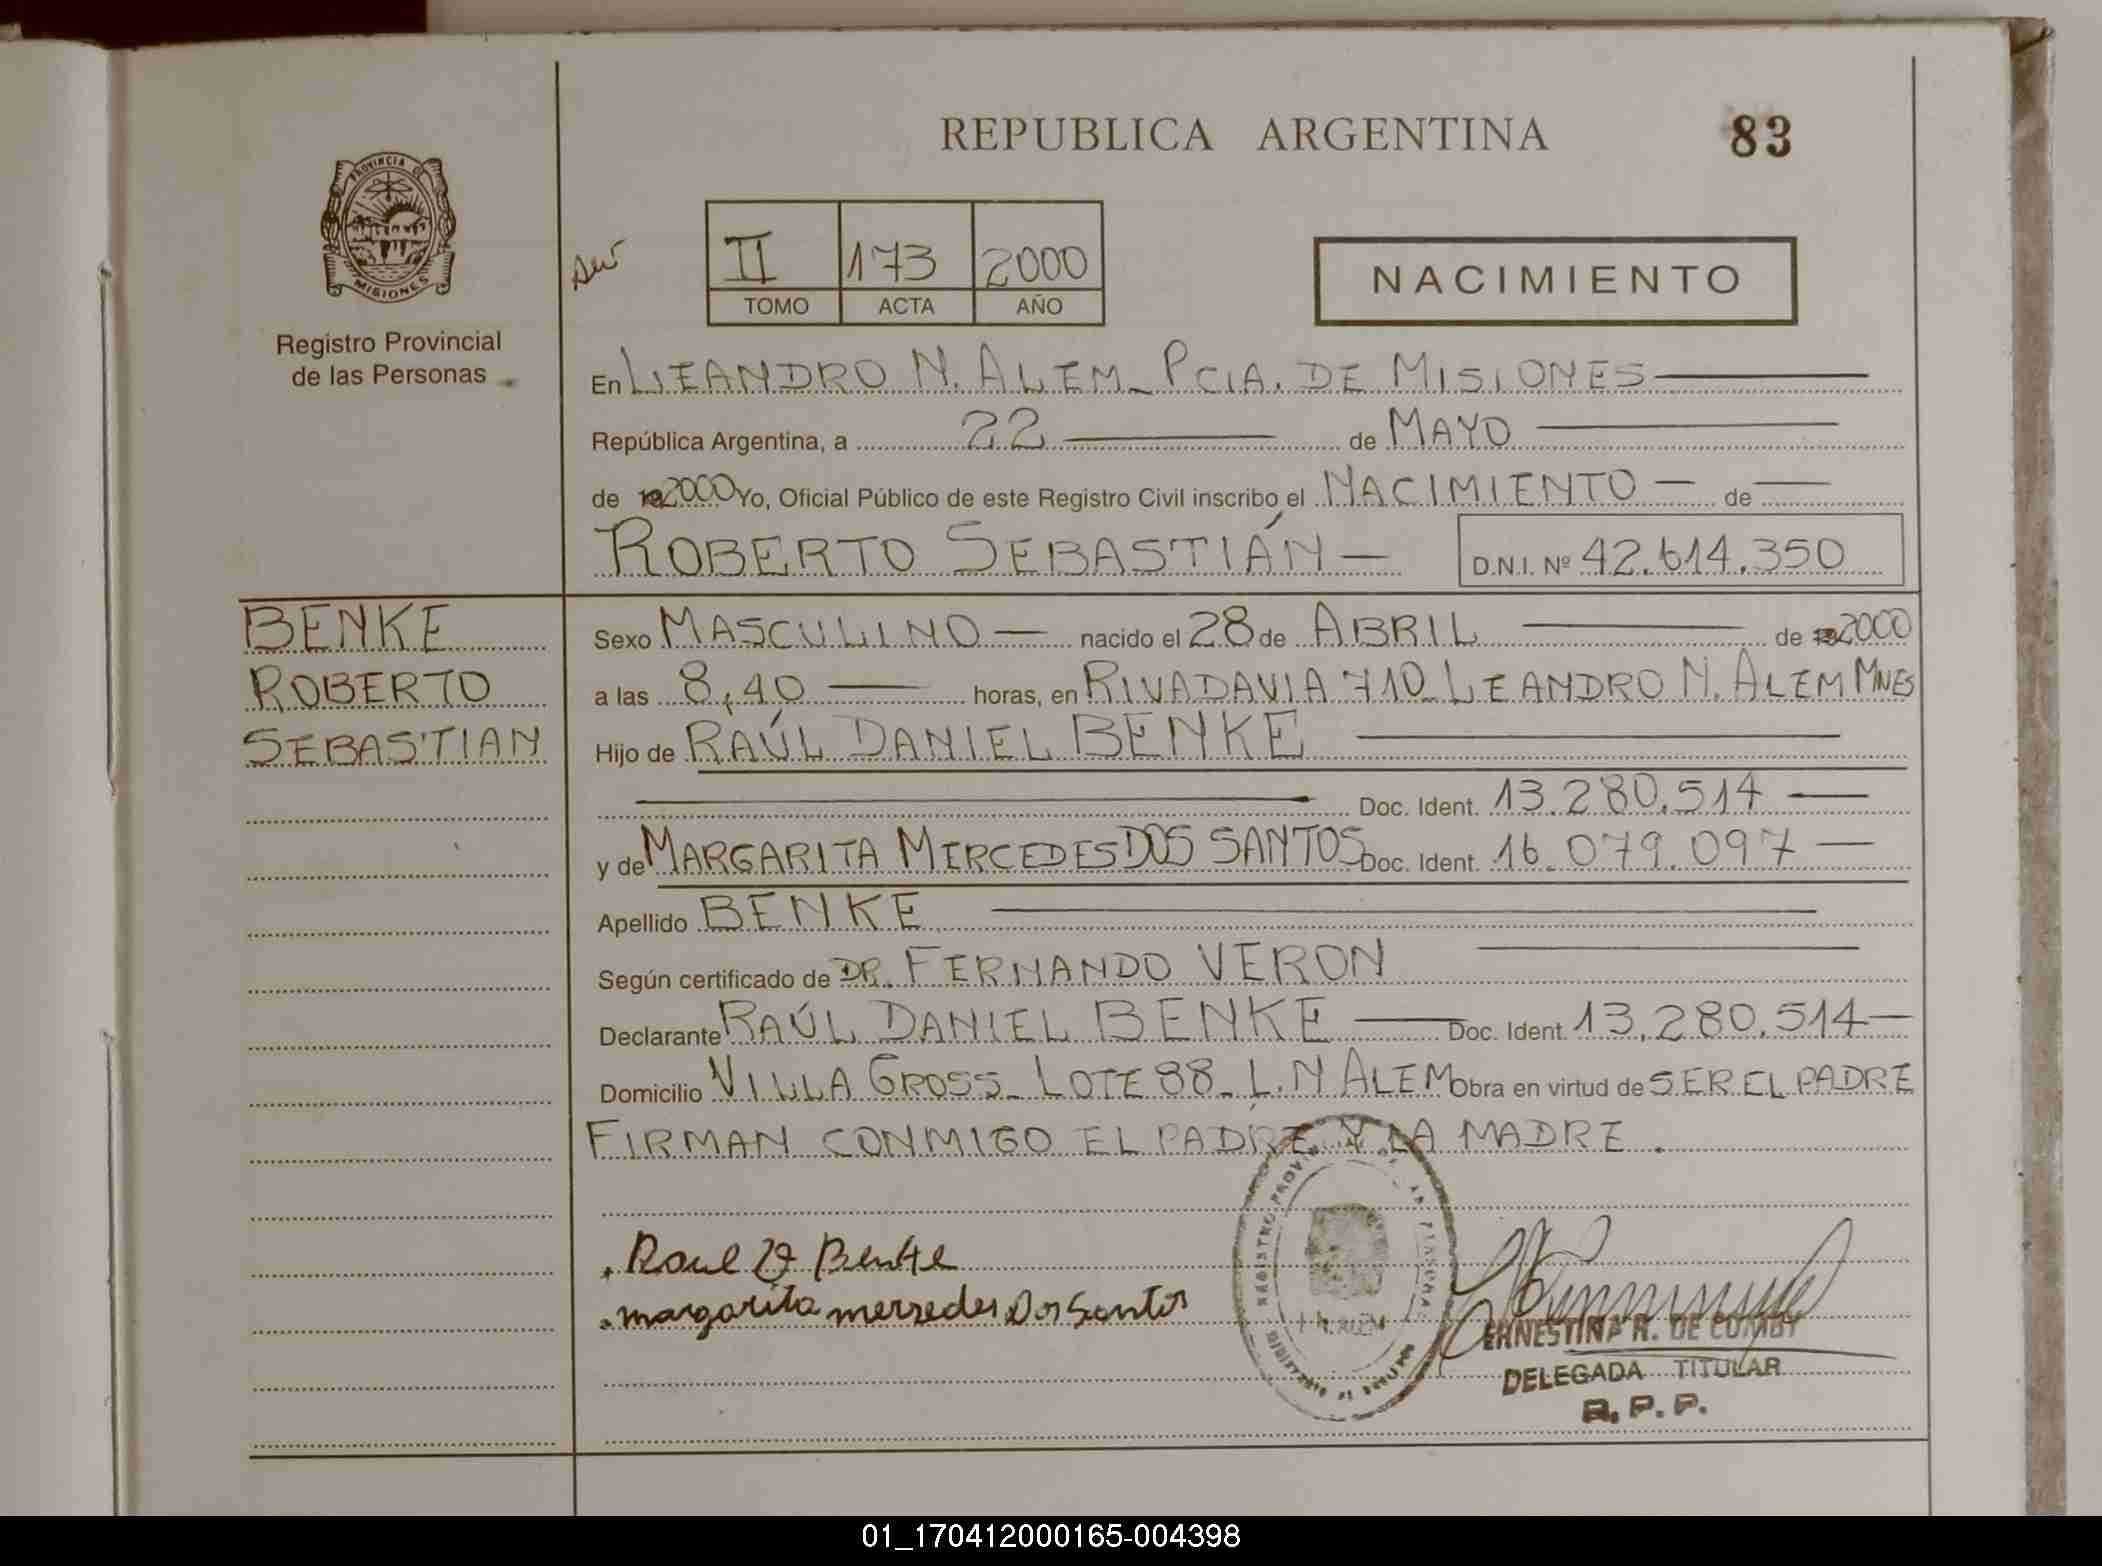 REPUBLICA ARGENTINA
83
PROVINCIA DE
MISIONES
Registro Provincial
de las Personas
II 173 2000
TOMO ACTA AÑO
NACIMIENTO
En LEANDRO N. ALEM_ PCIA. DE MISIONES
República Argentina, a 22 de MAYO
de 2000 Yo, Oficial Público de este Registro Civil inscribo el NACIMIENTO de
ROBERTO SEBASTIÁN D.N.I. Nº 42.614.350
BENKE
ROBERTO
SEBASTIAN
Sexo MASCULINO nacido el 28 de ABRIL de 2000
a las 8,40 horas, en RIVADAVIA 710_ LEANDRO N. ALEM MNES
Hijo de RAÚL DANIEL BENKE
Doc. Ident. 13.280.514
y de MARGARITA MERCEDES DOS SANTOS Doc. Ident. 16.079.097
Apellido BENKE
Según certificado de DR. FERNANDO VERON
Declarante RAÚL DANIEL BENKE Doc. Ident. 13.280.514
Domicilio VILLA GROSS_ LOTE 88_ L.N ALEM Obra en virtud de SER EL PADRE
FIRMAN CONMIGO EL PADRE Y LA MADRE.
Raul D Benke
margarita merzedes Dos Santos
ERNESTINA R. DE
DELEGADA TITULAR
R. P. P.
01_170412000165-004398